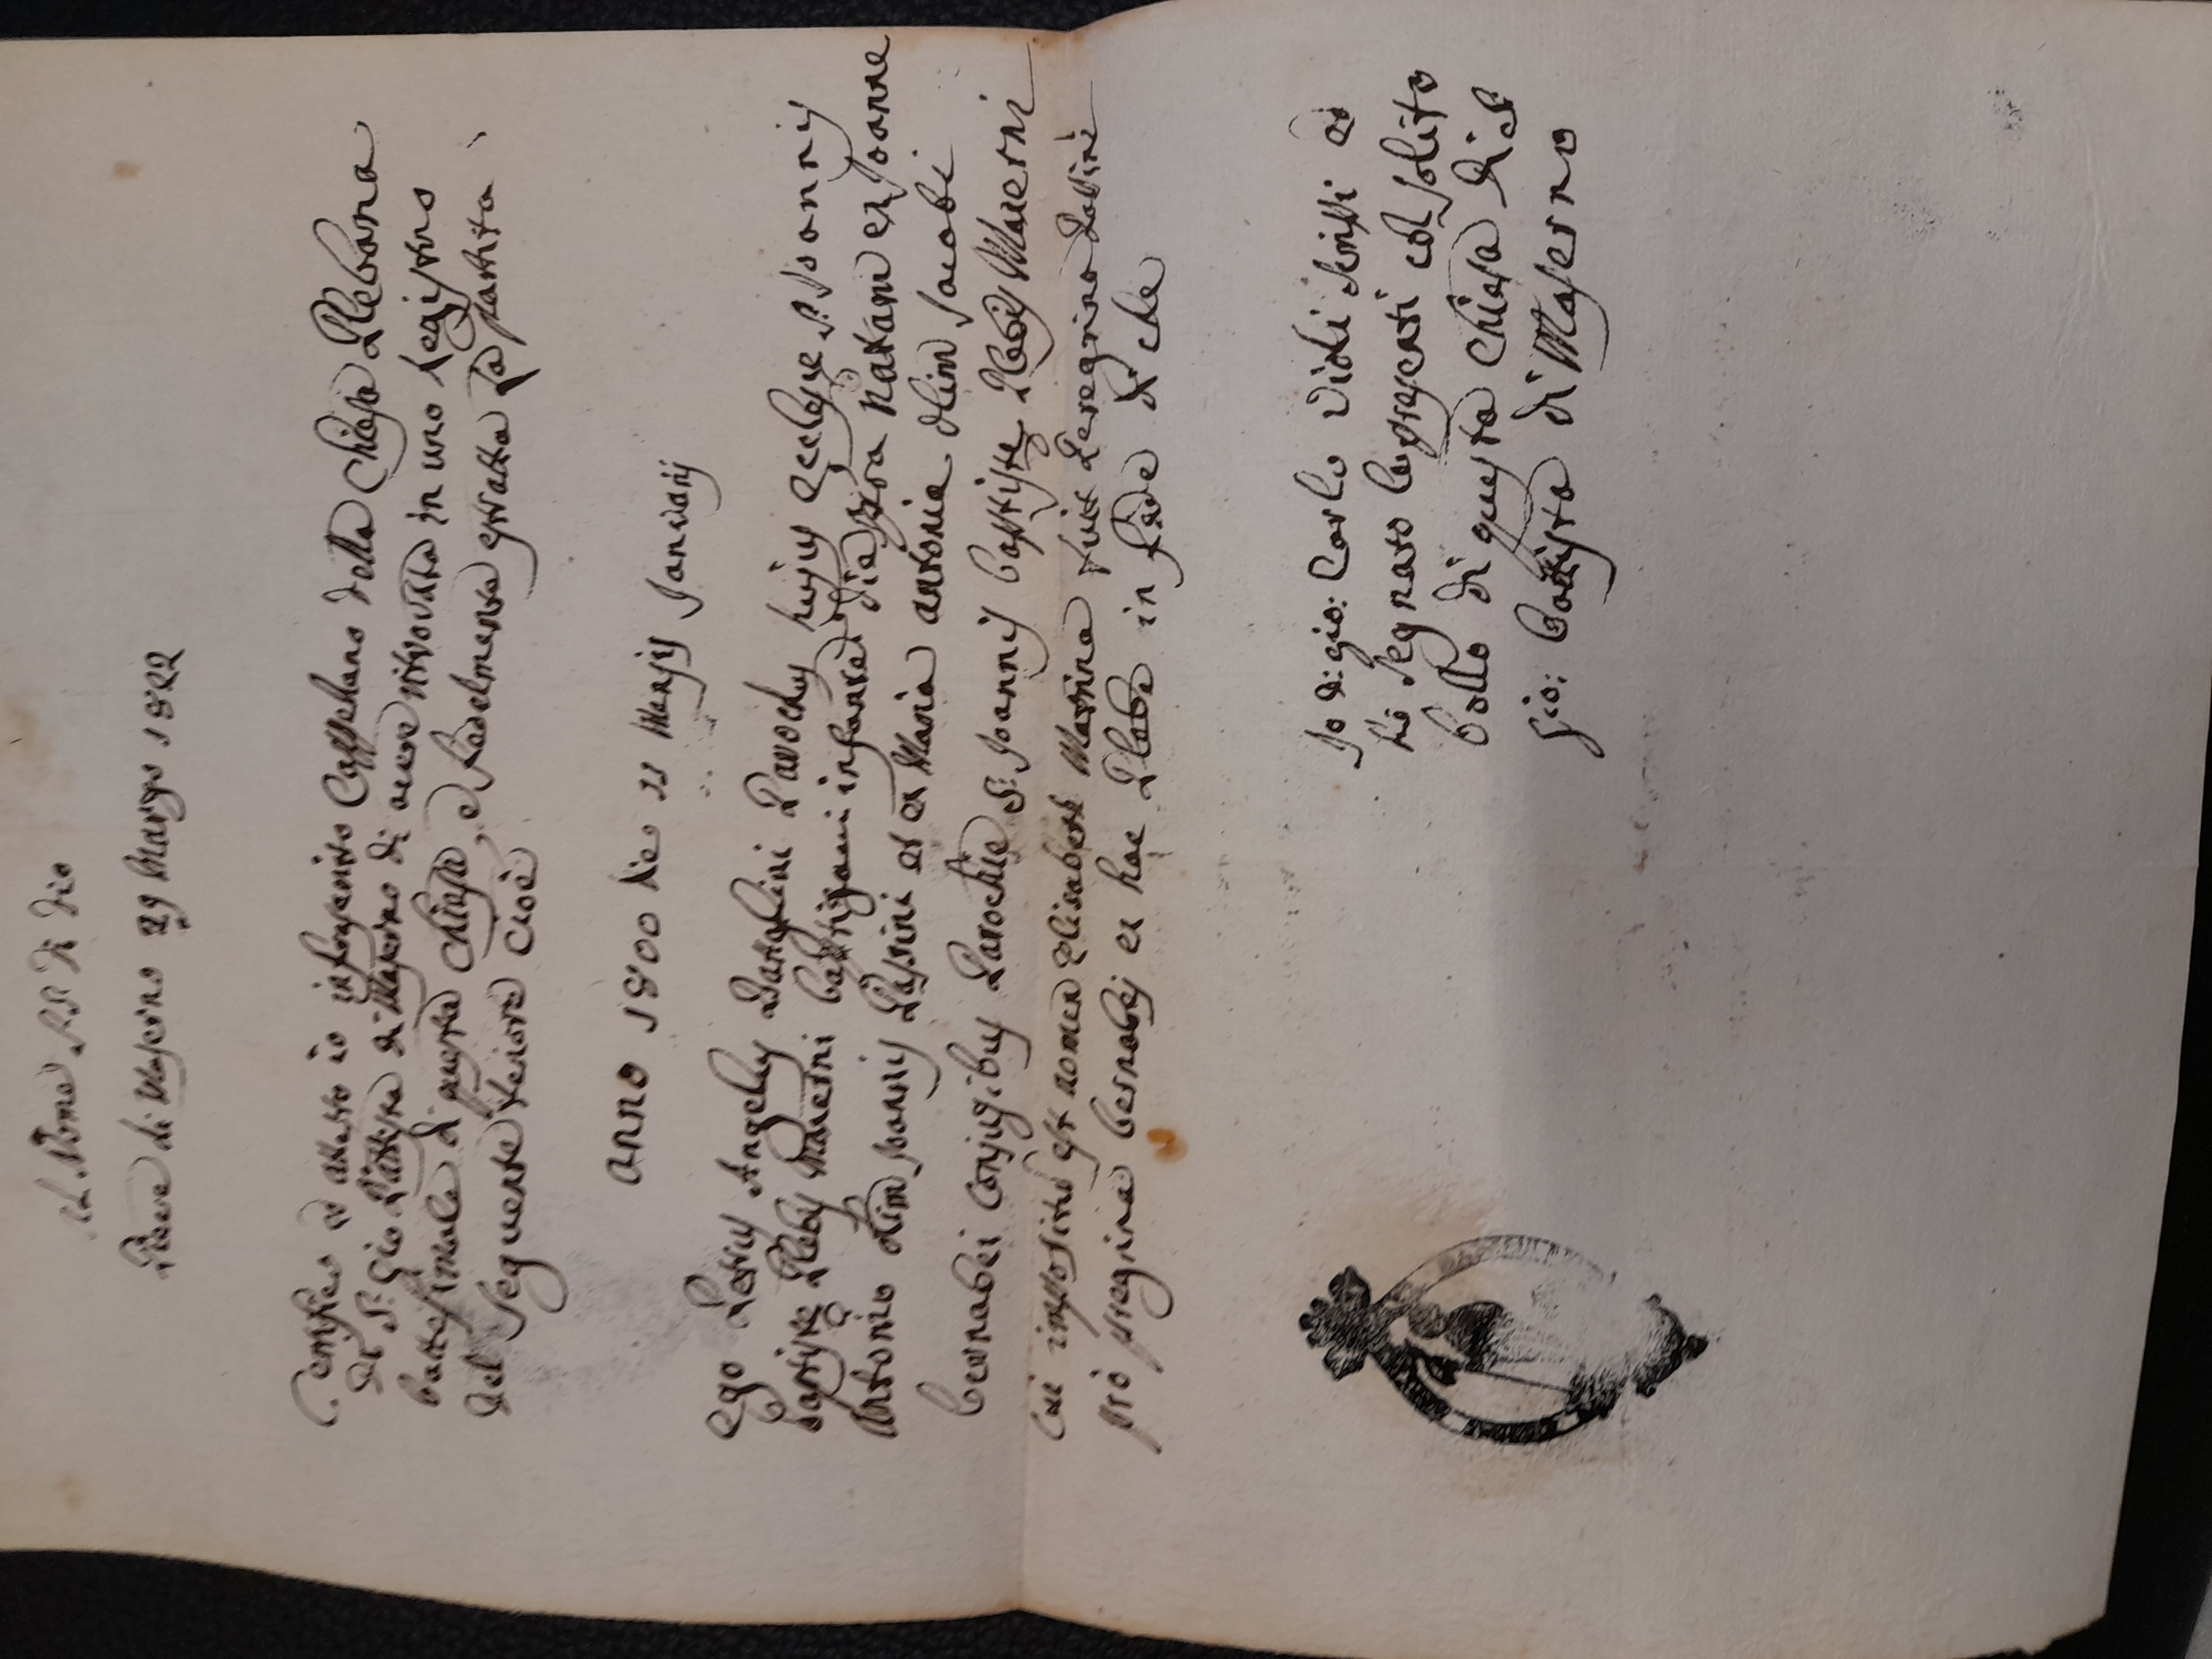 Al Nome SS di Dio
Pieve di Maserno 29 Marzo 1822
Confesso ed attesto io infrascritto Cappellano della Chiesa Plebana
di S. Gio Batista di Maserno di avere ritrovata in uno legistro
battesimale di questa Chiesa, e fedelmente estratta la partita
del seguente tenore cioè
Anno 1800 die 11 Mensis Januarij
Ego Petrus Angelus Parochus hujus Ecclesie S. Joannis
baptiste Plebis Maserni baptizavi infantem die natam ex Joanne
Antonio olim Joannis Passini et ex Maria Antonia olim Jacobi
Bernabei conjugibus Parochie S. Joannis Baptiste Plebis Maserni
Cui impositum est nomen Elisabeth Matrina fuit Peregrina
pro pregrina bernabej ex hac Plebe in fede di che
Io D. Gio: Carlo Violi scrissi ed
ho segnato la presente col solito
bollo di questa Chiesa di S.
Gio: Batista di Maserno